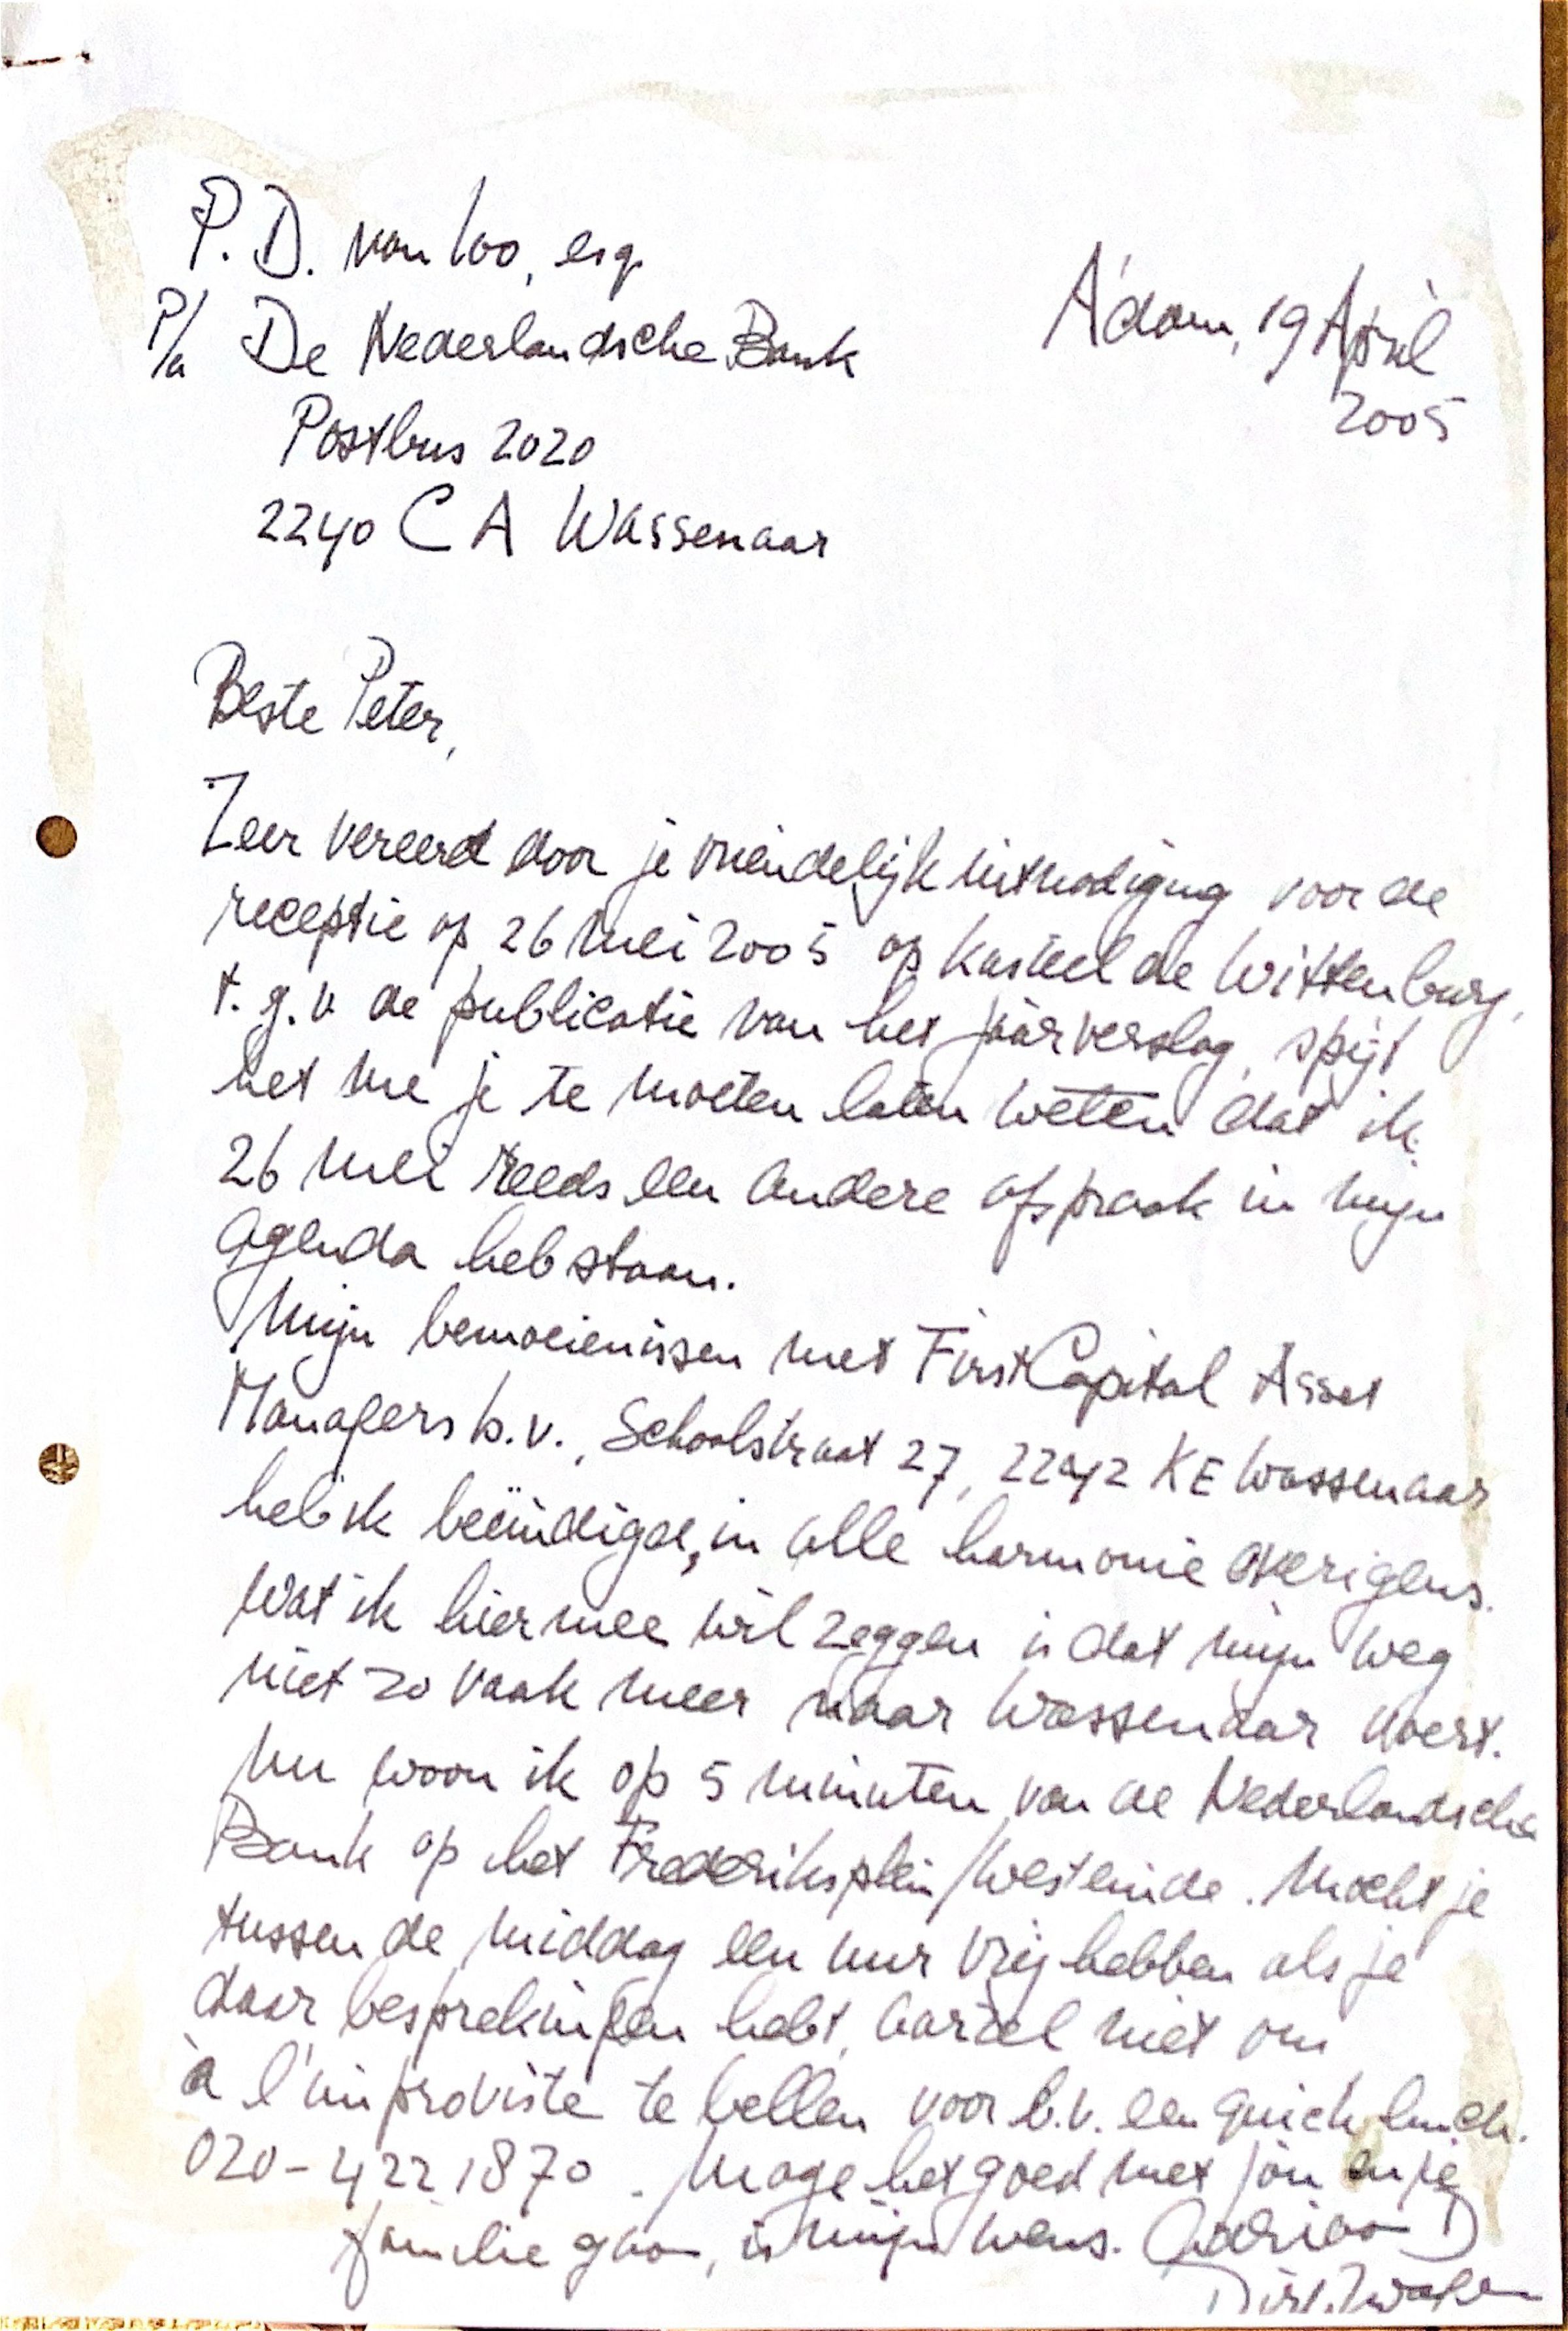 P. D. van Loo, esq.
A'dam, 19 April
2005
P/a De Nederlandsche Bank
Postbus 2020
2240 CA Wassenaar
Beste Peter,
Zeer vereerd door je vriendelijk uitnodiging voor de
receptie op 26 mei 2005 op kasteel de Wittenburg,
t.g.v. de publicatie van het jaarverslag, spijt
het me je te moeten laten weten dat ik
26 mei reeds een andere afspraak in mijn
agenda heb staan.
Mijn bemoeienissen met First Capital Asset
Managers b.v., Schoolstraat 27, 2242 KE Wassenaar
heb ik beëindigd, in alle harmonie overigens.
Wat ik hiermee wil zeggen is dat mijn weg
niet zo vaak meer naar Wassenaar voert.
Nu woon ik op 5 minuten van de Nederlandsche
Bank op het Frederiksplein/Westeinde. Mocht je
tussen de middag een uur vrij hebben als je
daar besprekingen hebt, aarzel niet om
à l'improviste te bellen voor b.v. een quick lunch.
020-4221870. Moge het goed met jou en je
familie gaan, is mijn wens. Adriaan D